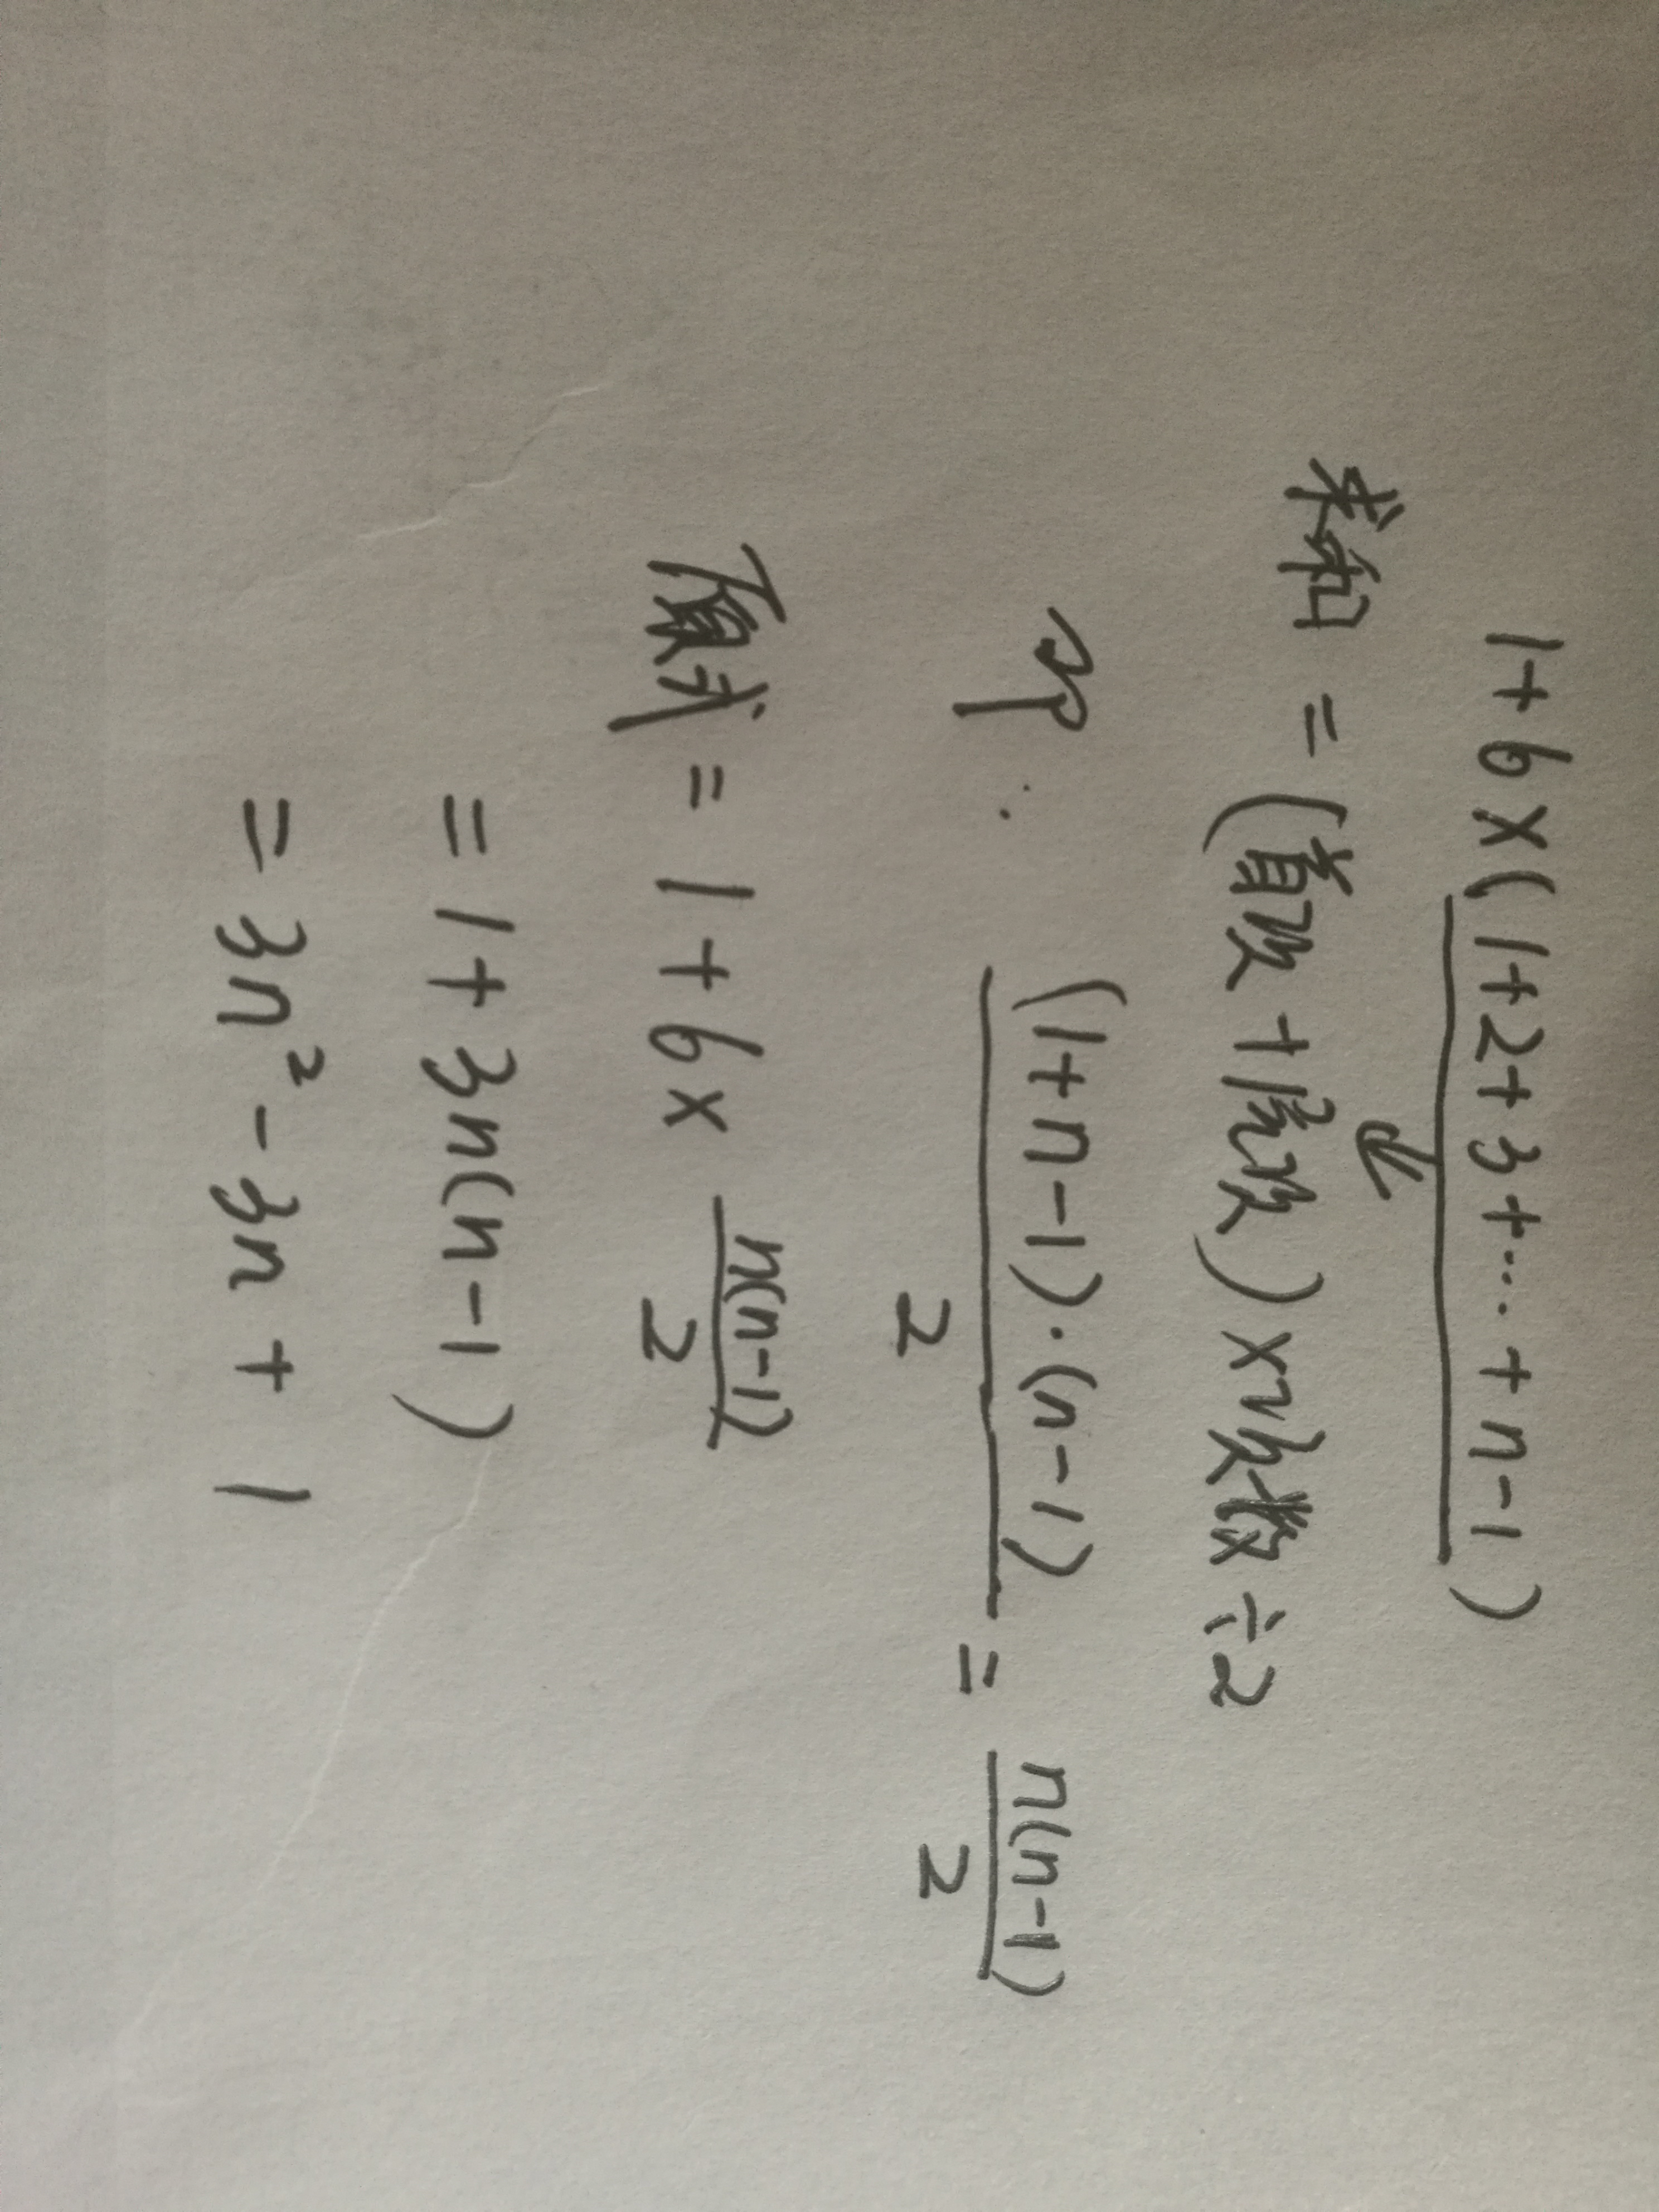 1+6×(1+2+3+…+n-1)
求和=(首项+尾项)×项数÷2
即: (1+n-1)·(n-1)/2 = n(n-1)/2
原式=1+6× n(n-1)/2
=1+3n(n-1)
=3n²-3n+1